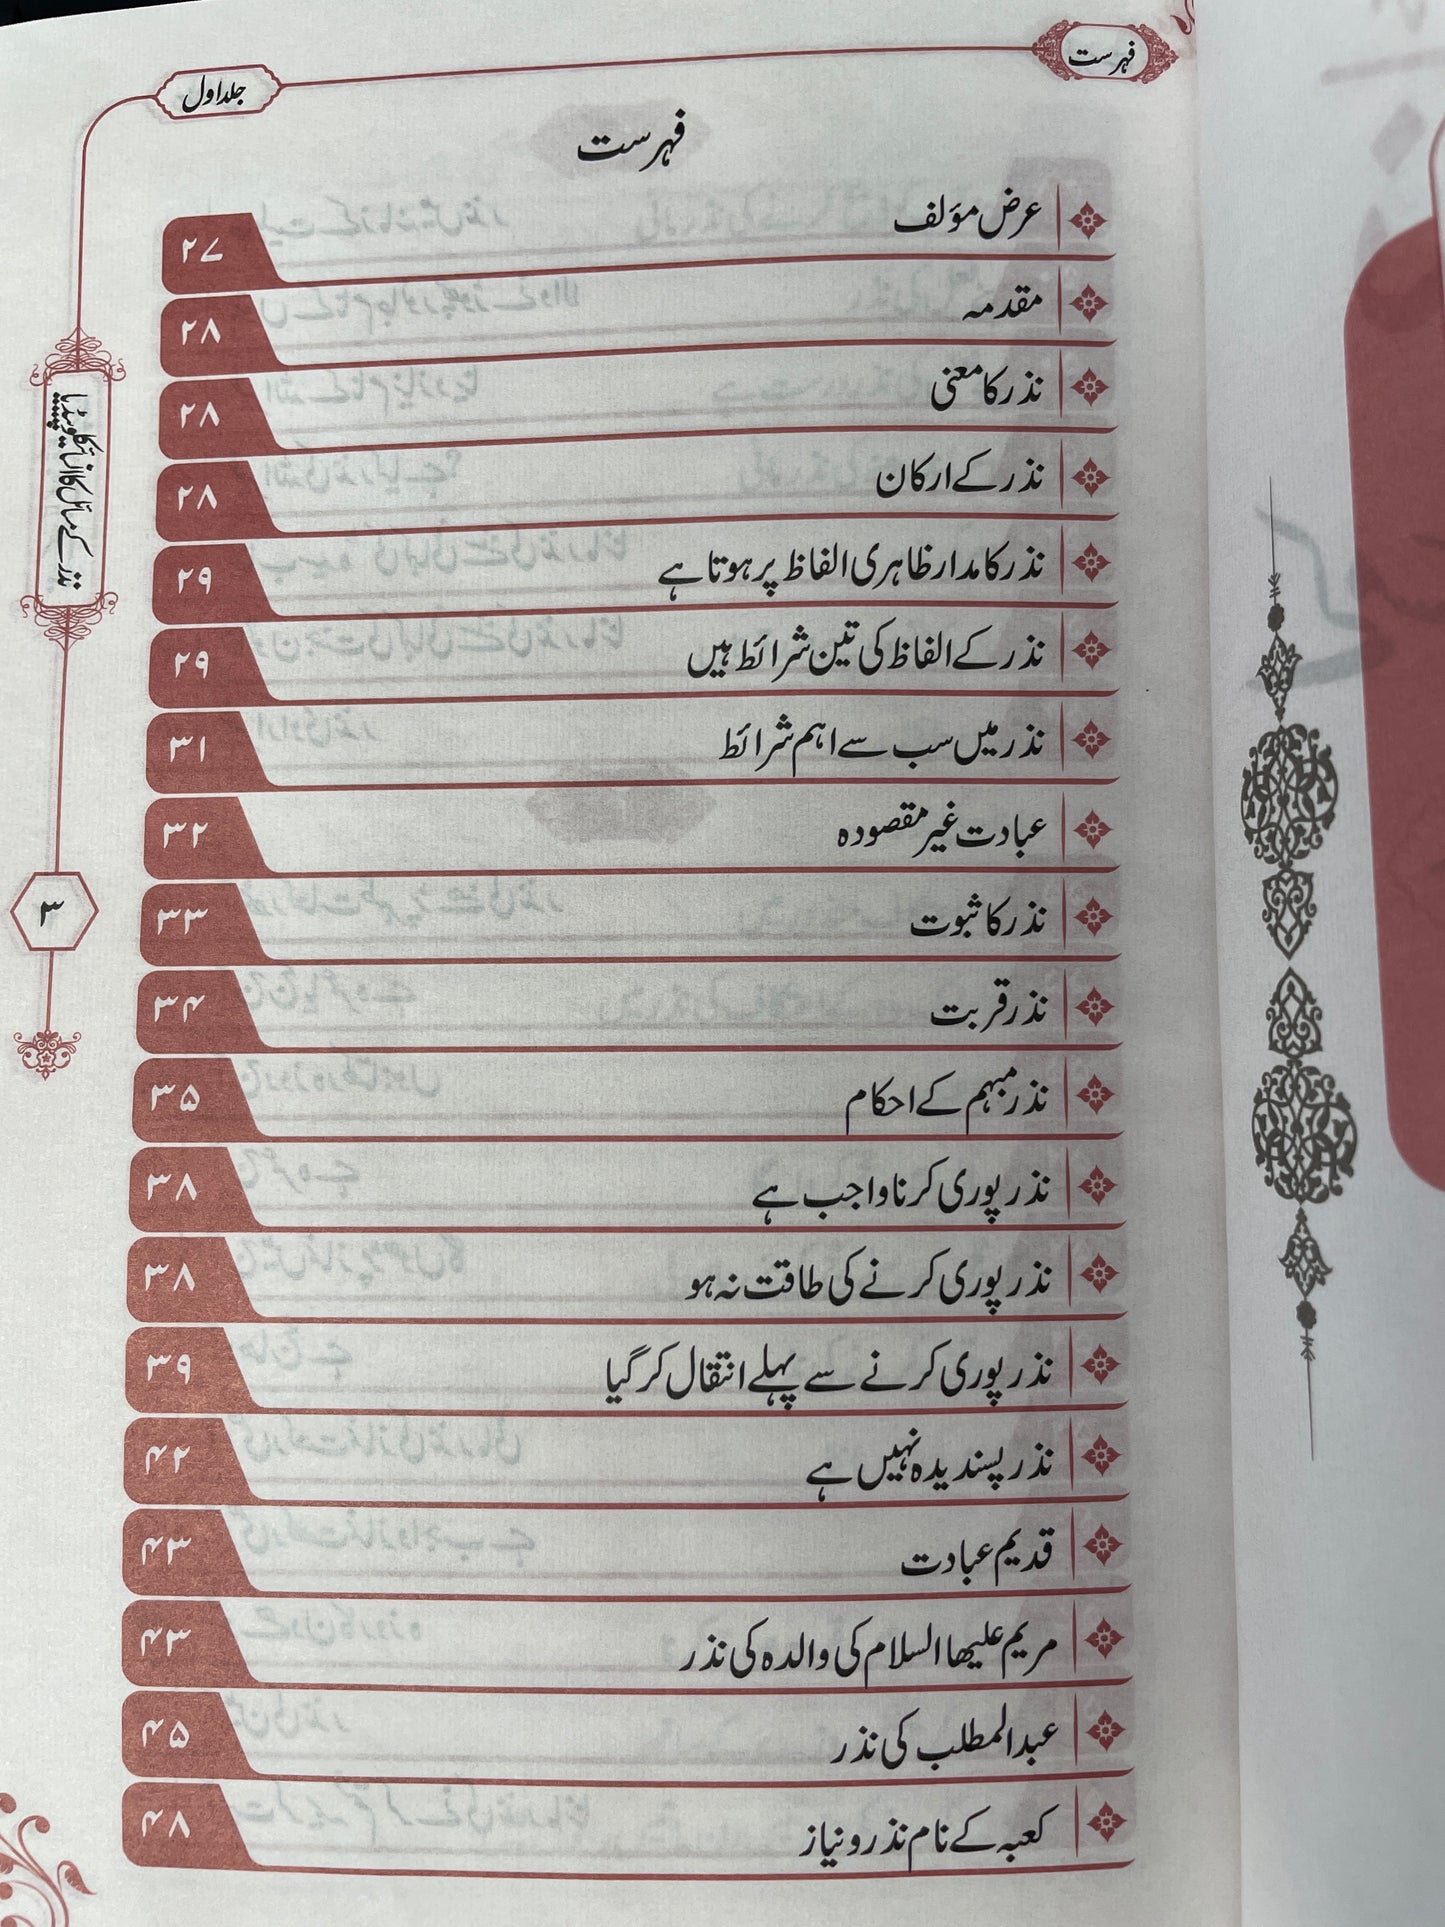 فہرست
جلد اول
فہرست
عرض مؤلف ۲۷
مقدمہ ۲۸
نذر کا معنی ۲۸
نذر کے ارکان ۲۸
نذر کا مدار ظاہری الفاظ پر ہوتا ہے ۲۹
نذر کے الفاظ کی تین شرائط ہیں ۲۹
نذر میں سب سے اہم شرائط ۳۱
عبادت غیر مقصودہ ۳۲
نذر کا ثبوت ۳۳
نذر قربت ۳۴
نذر مبہم کے احکام ۳۵
نذر پوری کرنا واجب ہے ۳۸
نذر پوری کرنے کی طاقت نہ ہو ۳۸
نذر پوری کرنے سے پہلے انتقال کر گیا ۳۹
نذر پسندیدہ نہیں ہے ۴۲
قدیم عبادت ۴۳
مریم علیھا السلام کی والدہ کی نذر ۴۳
عبد المطلب کی نذر ۴۵
کعبہ کے نام نذر و نیاز ۴۸
نذر کے مسائل کا انسائیکلوپیڈیا
۳